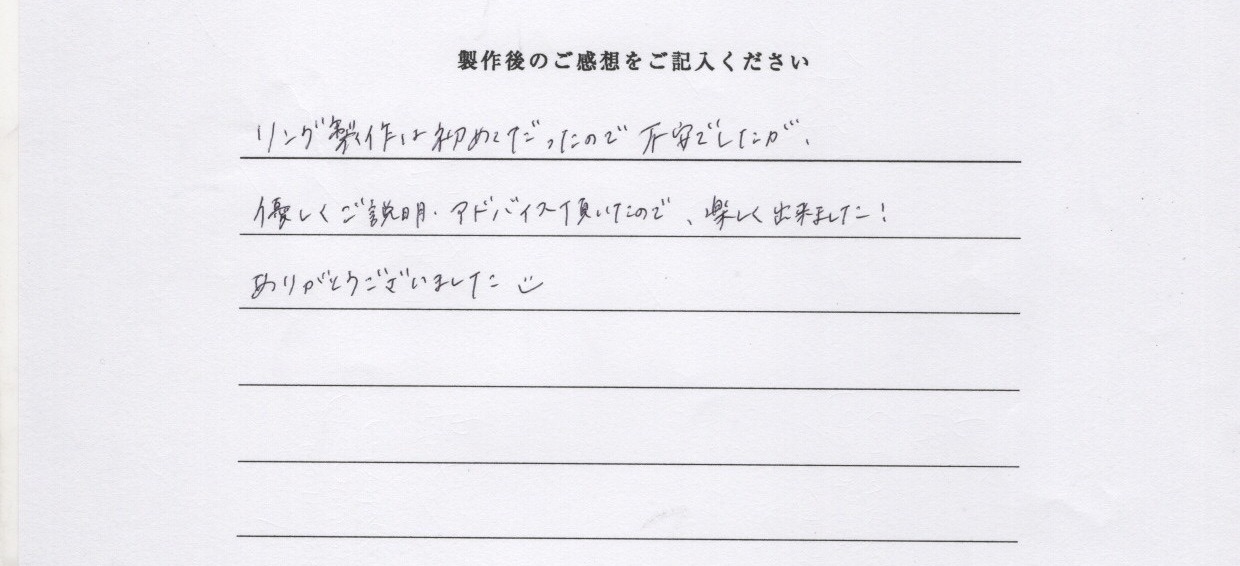 製作後のご感想をご記入ください
リング製作は初めてだったので不安でしたが、
優しくご説明・アドバイス頂いたので、楽しく出来ました!
ありがとうございました